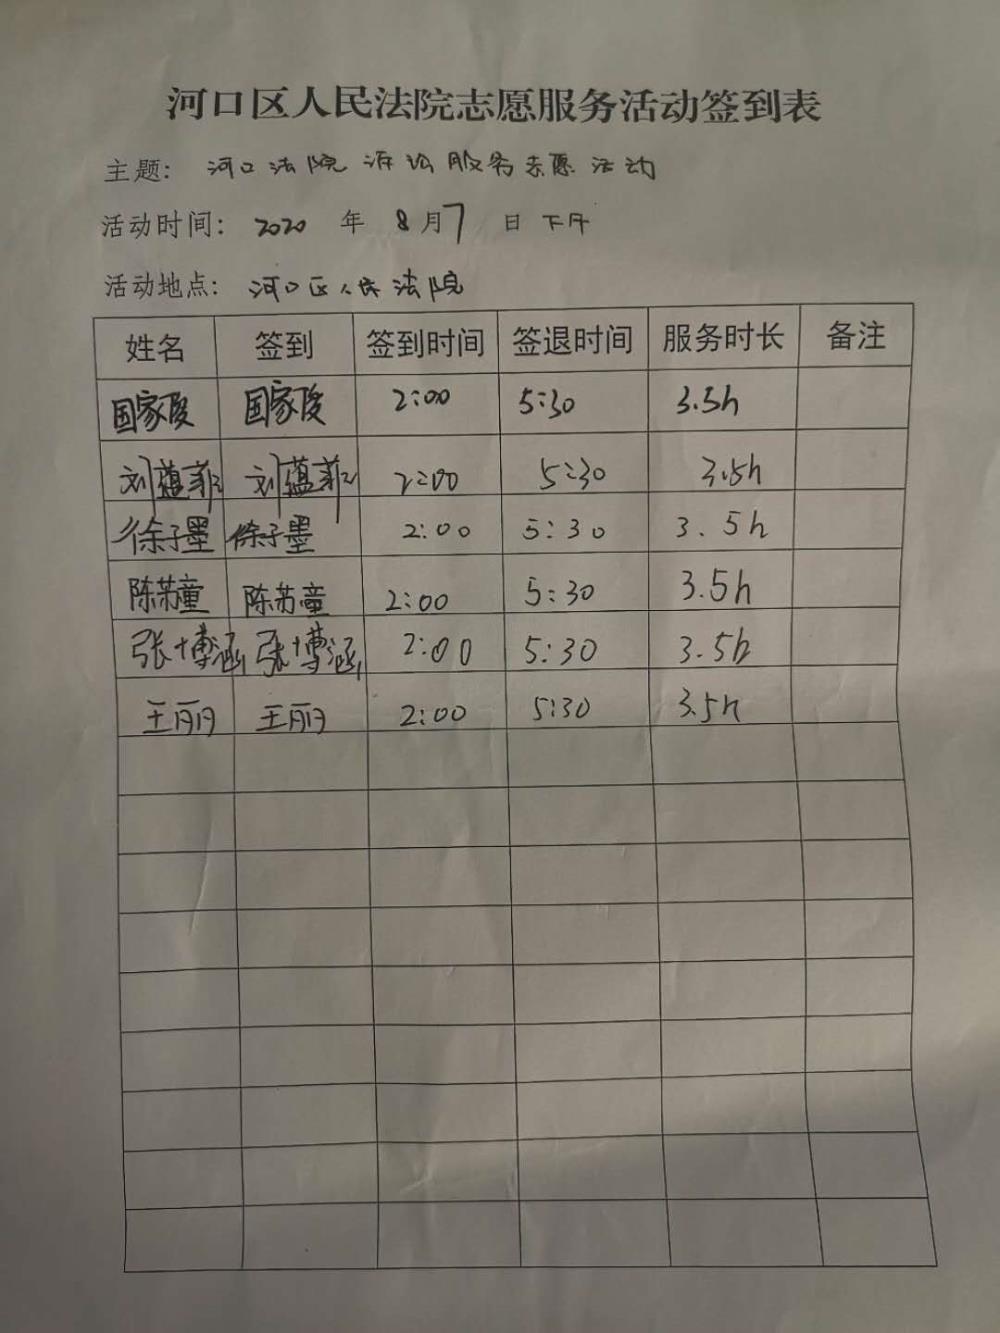 河口区人民法院志愿服务活动签到表
主题: 河口法院诉讼服务志愿活动
活动时间: 2020 年 8月7 日 下午
活动地点: 河口区人民法院
姓名 签到 签到时间 签退时间 服务时长 备注
国家 国家 2:00 5:30 3.5h
刘蕴菲 刘蕴菲 2:00 5:30 3.5h
徐子墨 徐子墨 2:00 5:30 3.5h
陈苏童 陈苏童 2:00 5:30 3.5h
张博涵 张博涵 2:00 5:30 3.5h
王丽 王丽 2:00 5:30 3.5h